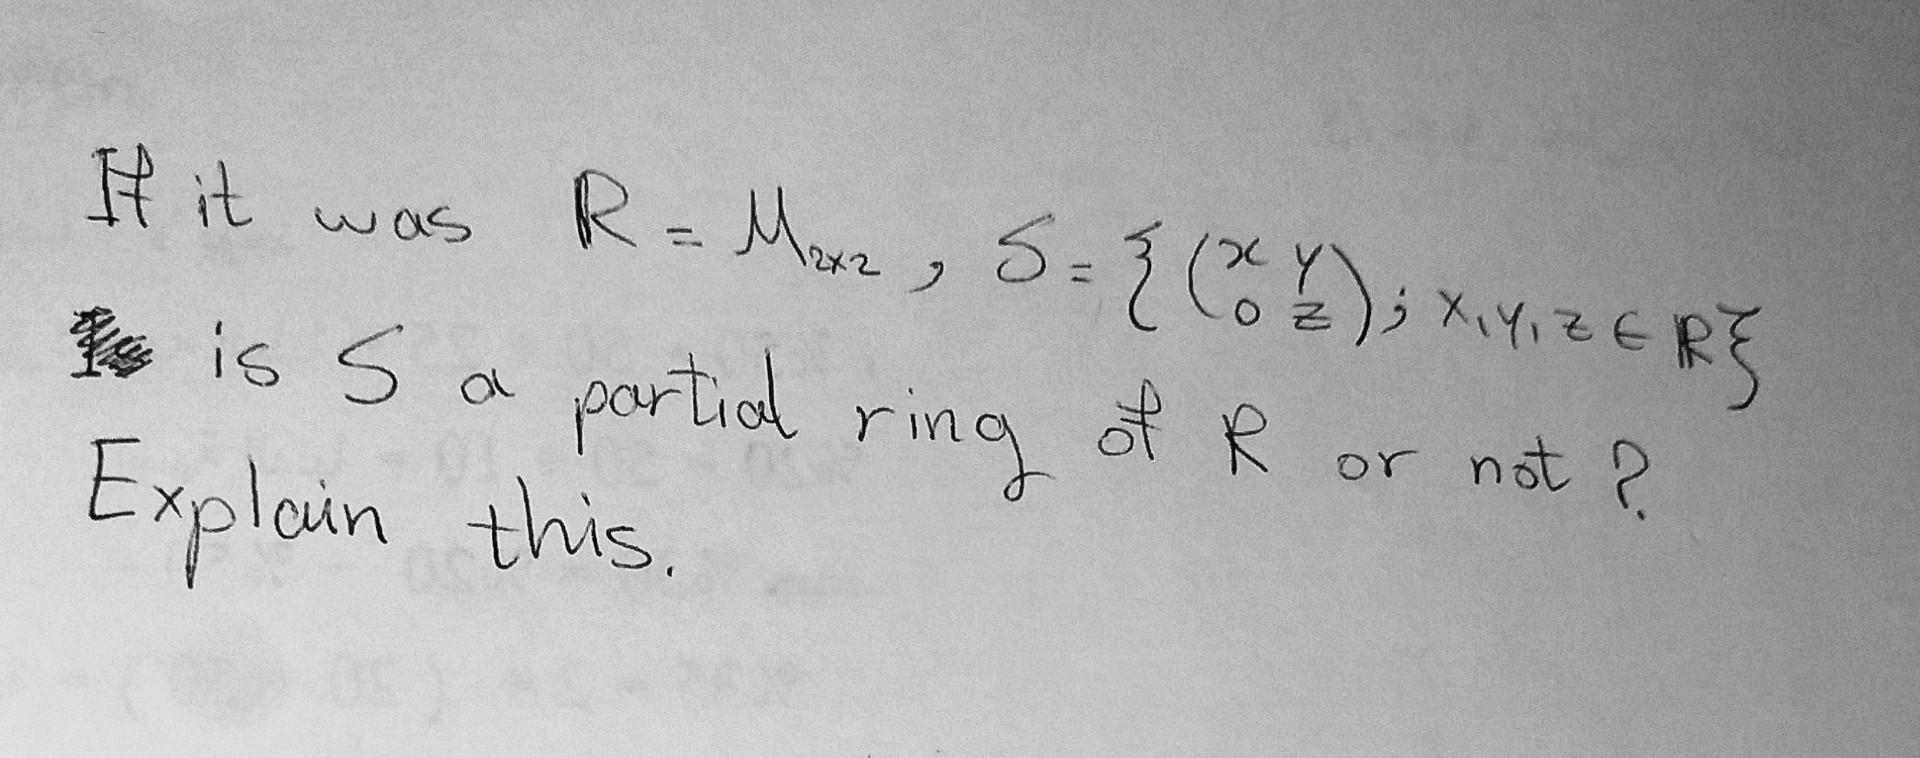 If it was R = M₂ₓ₂ , S = {(x y
0 z); x, y, z ∈ ℝ}
is S a partial ring of R or not ?
Explain this.